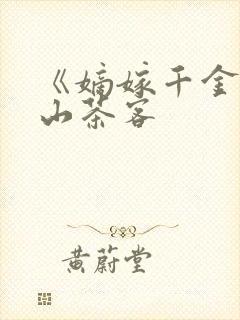 《嫡嫁千金
山茶客
黄蔚堂